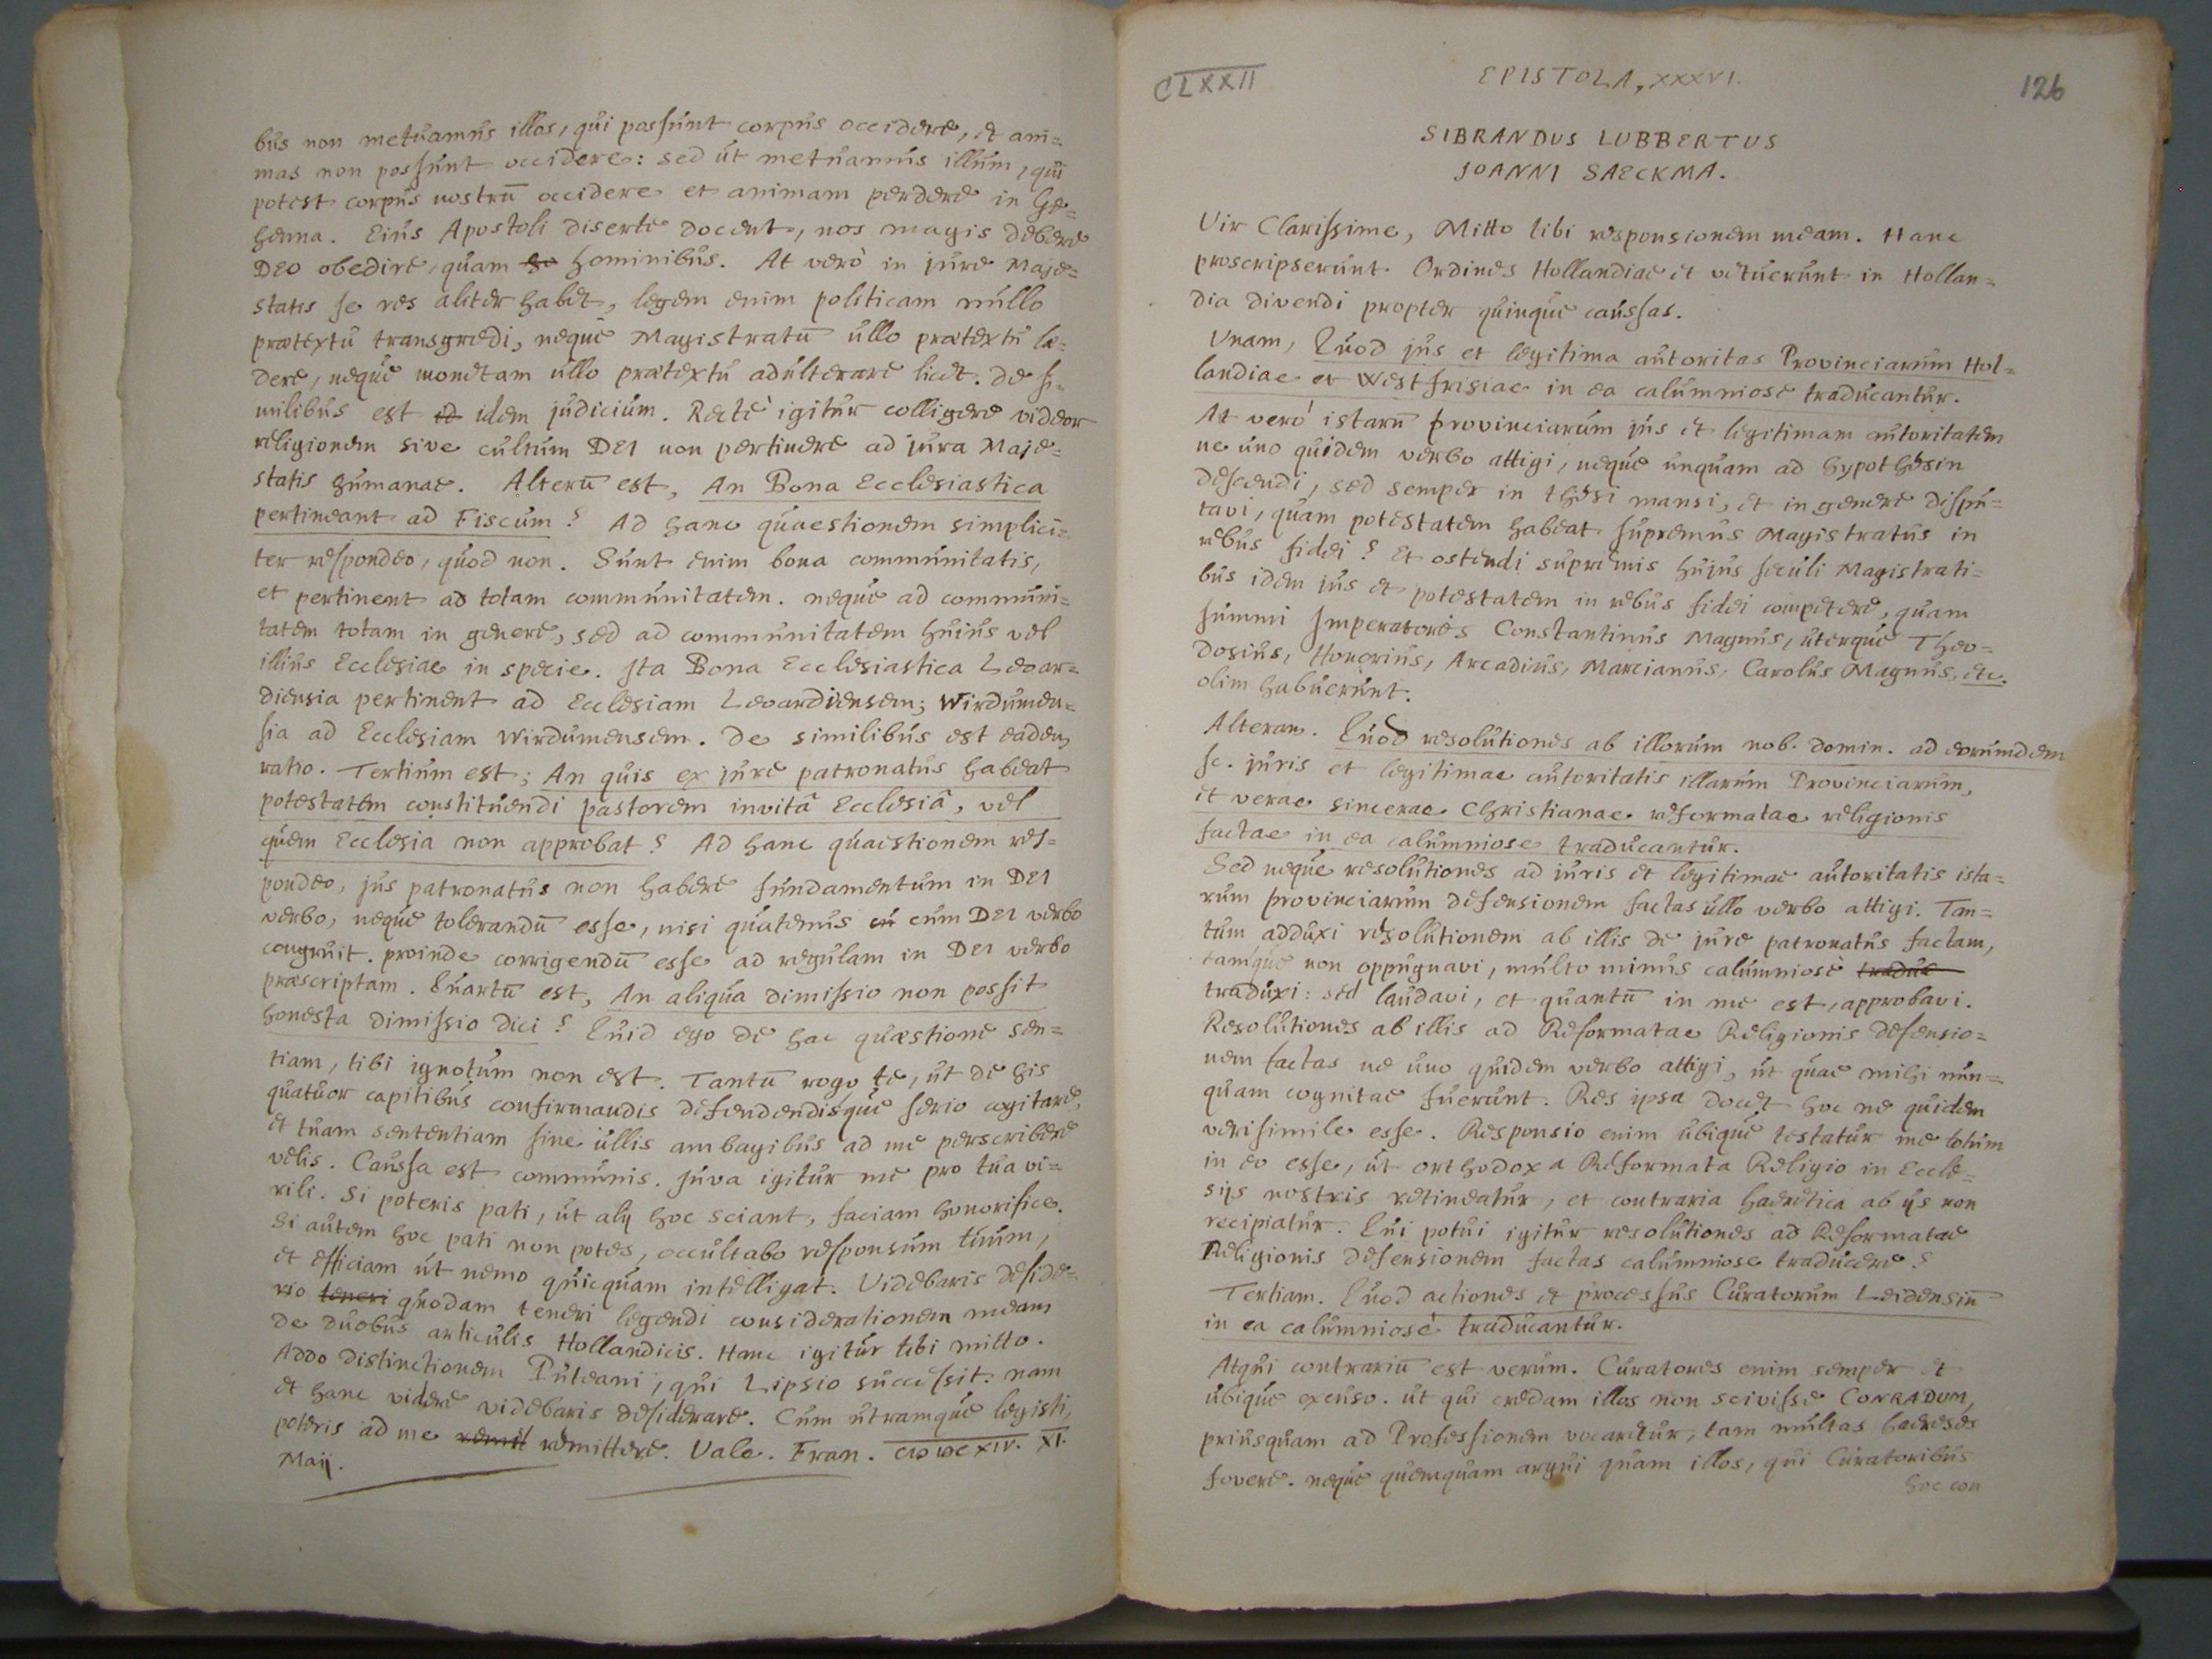 bus non metuamus illos, qui possunt corpus occidere, et ani=
mas non possunt occidere: sed ut metuamus illum, qui
potest corpus nostrū occidere et animam perdere in Ge=
henna. Eius Apostoli diserte docent, nos magis debere
DEO obedire, quam hominibus. At verò in jure Maje=
statis se res aliter habet, legem enim politicam nullo
praetextu transgredi, neque Magistratū ullo praetextu lae=
dere, neque monetam ullo praetextu adulterare licet. De si=
milibus est id idem judicium. Rectè igitur colligere videor
religionem sive cultum DEI non pertinere ad jura Maje=
statis humanae. Alterū est, An Bona Ecclesiastica
pertineant ad Fiscum? Ad hanc quaestionem simplici=
ter respondeo, quod non. Sunt enim bona communitatis,
et pertinent ad totam communitatem. neque ad communi=
tatem totam in genere, sed ad communitatem huius vel
illius Ecclesiae in specie. Ita Bona Ecclesiastica Leoar=
diensia pertinent ad Ecclesiam Leoardiensem; Wirdumen=
sia ad Ecclesiam Wirdumensem. De similibus est eadem
ratio. Tertium est; An quis ex jure patronatus habeat
potestatem constituendi pastorem invitâ Ecclesiâ, vel
quem Ecclesia non approbat? Ad hanc quaestionem res=
pondeo, jus patronatus non habere fundamentum in DEI
verbo, neque tolerandū esse, nisi quatenus cū cum DEI verbo
congruit. proinde corrigendū esse ad regulam in DEI verbo
praescriptam. Quartū est, An aliqua dimissio non possit
honesta dimissio dici? Quid ego de hac quaestione sen=
tiam, tibi ignotum non est. Tantū rogo te, ut de his
quatuor capitibus confirmandis defendendisque serio cogitare,
et tuam sententiam sine ullis ambagibus ad me perscribere
velis. Caussa est communis. Juva igitur me pro tua vi=
rili. Si poteris pati, ut alij hoc sciant, faciam honorifice.
Si autem hoc pati non potes, occultabo responsum tuum,
et efficiam ut nemo quicquam intelligat. Videbaris deside=
rio teneri quodam teneri legendi considerationem meam
de duobus articulis Hollandicis. Hanc igitur tibi mitto.
Addo distinctionem Puteani, qui Lipsio successit. nam
et hanc videre videbaris desiderare. Cum utramque legisti,
poteris ad me remit remittere. Vale. Fran. CIↃ IↃC XIV. XI.
Maij.
CLXXII
EPISTOLA, XXXVI.
126
SIBRANDUS LUBBERTUS
JOANNI SAECKMA.
Vir Clarissime, Mitto tibi responsionem meam. Hanc
proscripserunt Ordines Hollandiae et vetuerunt in Hollan=
dia divendi propter quinque caussas.
Unam, Quod jus et legitima autoritas Provinciarum Hol=
landiae et Westfrisiae in ea calumniose traducantur.
At verò istarū provinciarum jus et legitimam autoritatem
ne uno quidem verbo attigi, neque unquam ad hypothesin
descendi, sed semper in thesi mansi, et in genere dispu=
tavi, quam potestatem habeat supremus Magistratus in
rebus fidei? Et ostendi supremis hujus seculi Magistrati=
bus idem jus et potestatem in rebus fidei competere, quam
summi Imperatores Constantinus Magnus, uterque Theo=
dosius, Honorius, Arcadius, Marcianus, Carolus Magnus, etc.
olim habuerunt.
Alteram. Quod resolutiones ab illorum nob. domin. ad eorumdem
sc. juris et legitimae autoritatis illarum Provinciarum,
et verae sincerae Christianae reformatae religionis
factae in ea calumniose traducantur.
Sed neque resolutiones ad juris et legitimae autoritatis ista=
rum provinciarum defensionem factas ullo verbo attigi. Tan=
tum adduxi resolutionem ab illis de jure patronatus factam,
eamque non oppugnavi, multo minus calumniosè traduc
traduxi: sed laudavi, et quantū in me est, approbavi.
Resolutiones ab illis ad Reformatae Religionis defensio=
nem factas ne uno quidem verbo attigi, ut quae mihi nun=
quam cognitae fuerunt. Res ipsa docet hoc ne quidem
verisimile esse. Responsio enim ubique testatur me totum
in eo esse, ut orthodoxa Reformata Religio in Eccle=
sijs nostris retineatur, et contraria haeretica ab ijs non
recipiatur. Qui potui igitur resolutiones ad Reformatae
Religionis defensionem factas calumniose traducere?
Tertiam. Quod actiones et processus Curatorum Leidensiū
in ea calumniosè traducantur.
Atqui contrariū est verum. Curatores enim semper et
ubique excuso. ut qui credam illos non scivisse CONRADUM,
priusquam ad Professionem vocaretur, tam multas haereses
fovere. neque quemquam argui quam illos, qui Curatoribus
hoc con